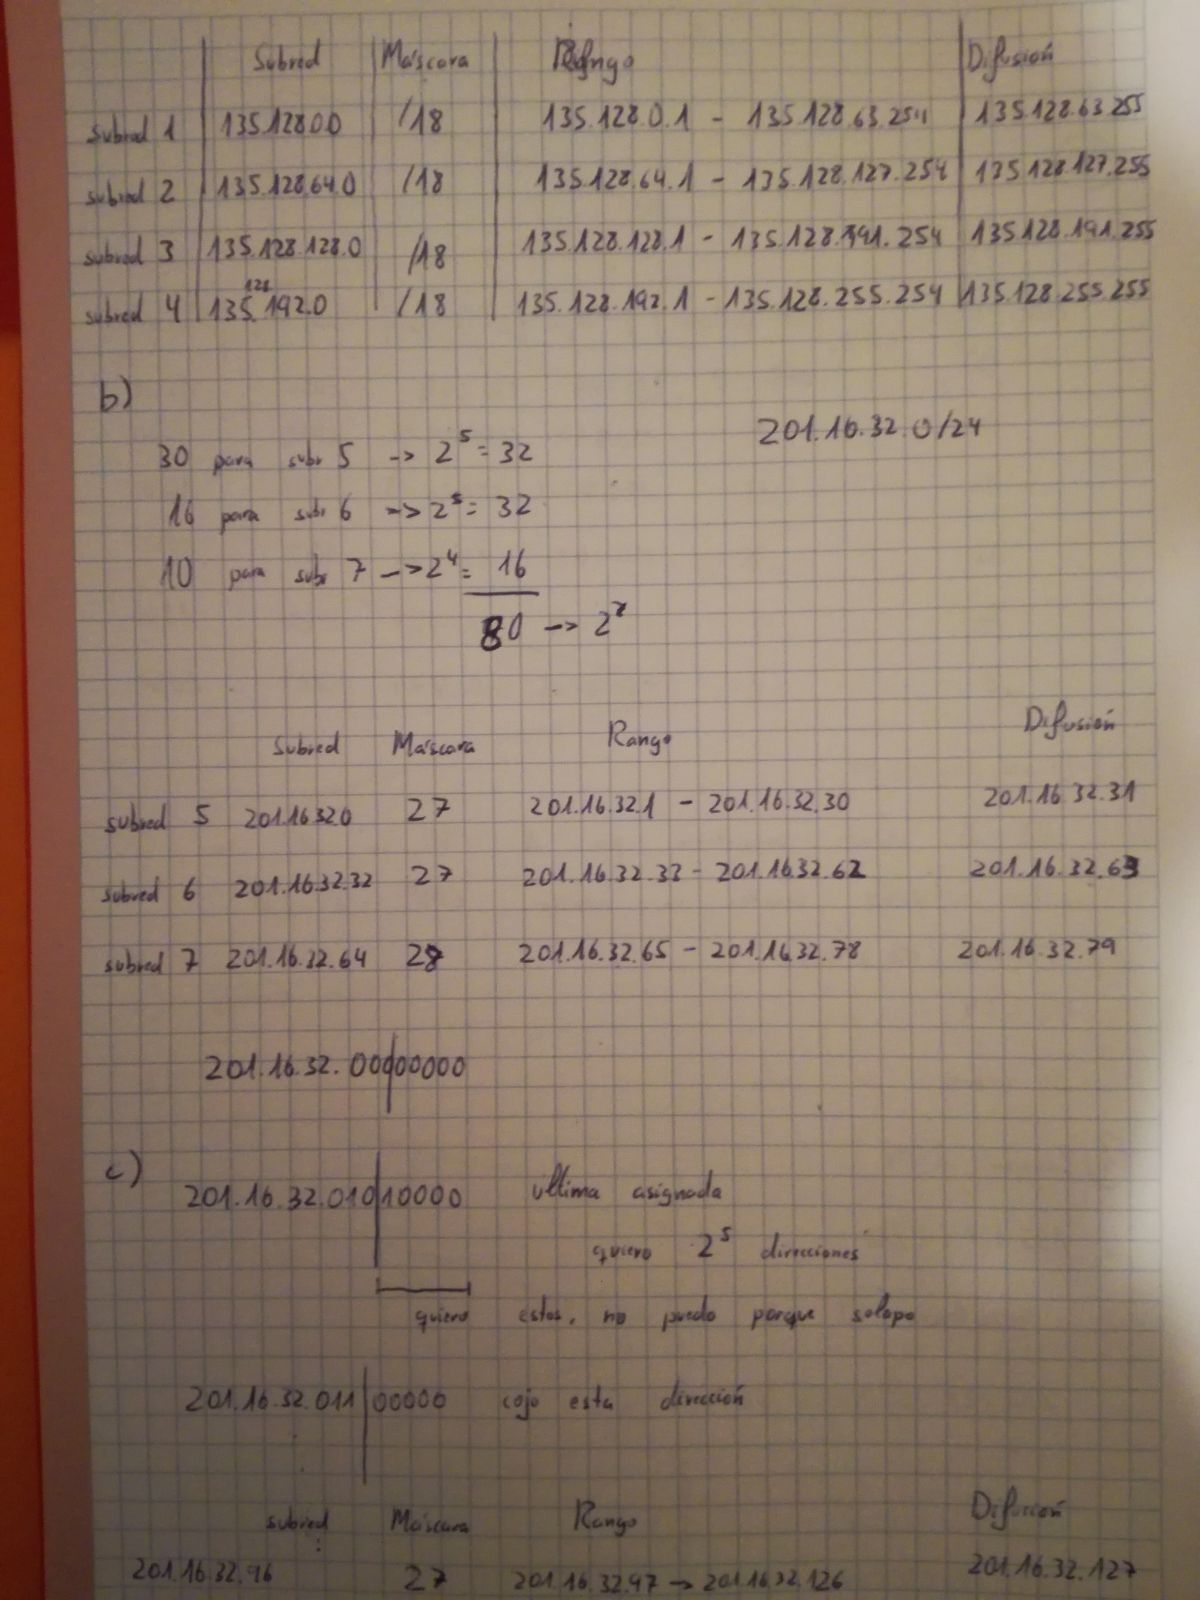 Subred Máscara Rango Difusión
subred 1 135.128.0.0 /18 135.128.0.1 - 135.128.63.254 135.128.63.255
subred 2 135.128.64.0 /18 135.128.64.1 - 135.128.127.254 135.128.127.255
subred 3 135.128.128.0 /18 135.128.128.1 - 135.128.191.254 135.128.191.255
subred 4 135.128.192.0 /18 135.128.192.1 - 135.128.255.254 135.128.255.255
b)
201.16.32.0/24
30 para subr 5 -> 2^5 = 32
16 para subr 6 -> 2^5 = 32
10 para subr 7 -> 2^4 = 16
80 -> 2^7
Subred Máscara Rango Difusión
subred 5 201.16.32.0 27 201.16.32.1 - 201.16.32.30 201.16.32.31
subred 6 201.16.32.32 27 201.16.32.33 - 201.16.32.62 201.16.32.63
subred 7 201.16.32.64 28 201.16.32.65 - 201.16.32.78 201.16.32.79
201.16.32.000|00000
c)
201.16.32.010|10000 ultima asignada
quiero 2^5 direcciones
quiero estos, no puedo porque solapo
201.16.32.011|00000 cojo esta dirección
subred Máscara Rango Difusión
201.16.32.96 27 201.16.32.97 -> 201.16.32.126 201.16.32.127